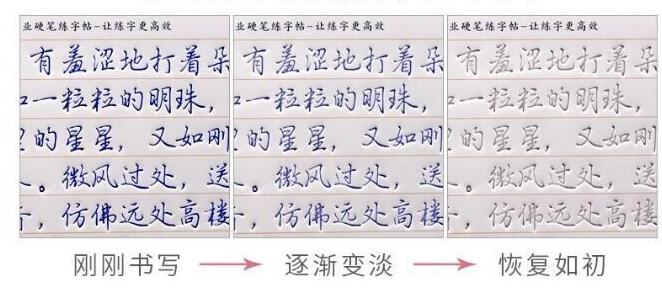 业硬笔练字帖-让练字更高效
有羞涩地打着朵
一粒粒的明珠，
的星星，又如刚
。微风过处，送
，仿佛远处高楼
业硬笔练字帖-让练字更高效
有羞涩地打着朵
一粒粒的明珠，
的星星，又如刚
。微风过处，送
，仿佛远处高楼
业硬笔练字帖-让练字更高效
有羞涩地打着朵
一粒粒的明珠，
的星星，又如刚
。微风过处，送
，仿佛远处高楼
刚刚书写 → 逐渐变淡 → 恢复如初